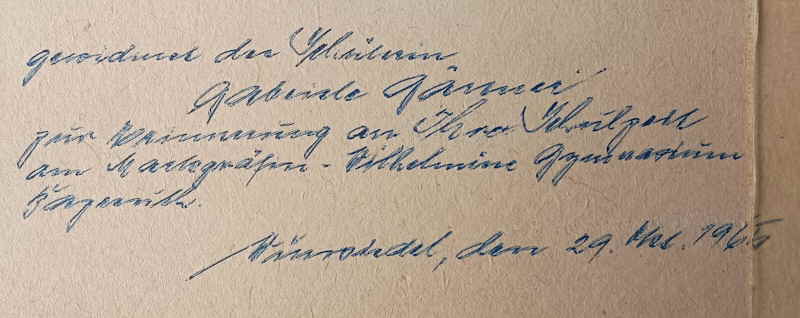 gewidmet der Schülerin
Gabriele
zur Erinnerung an Ihre Schulzeit
am Markgräfin-Wilhelmine Gymnasium
Bayreuth.
Wunsiedel, den 29. Okt. 196